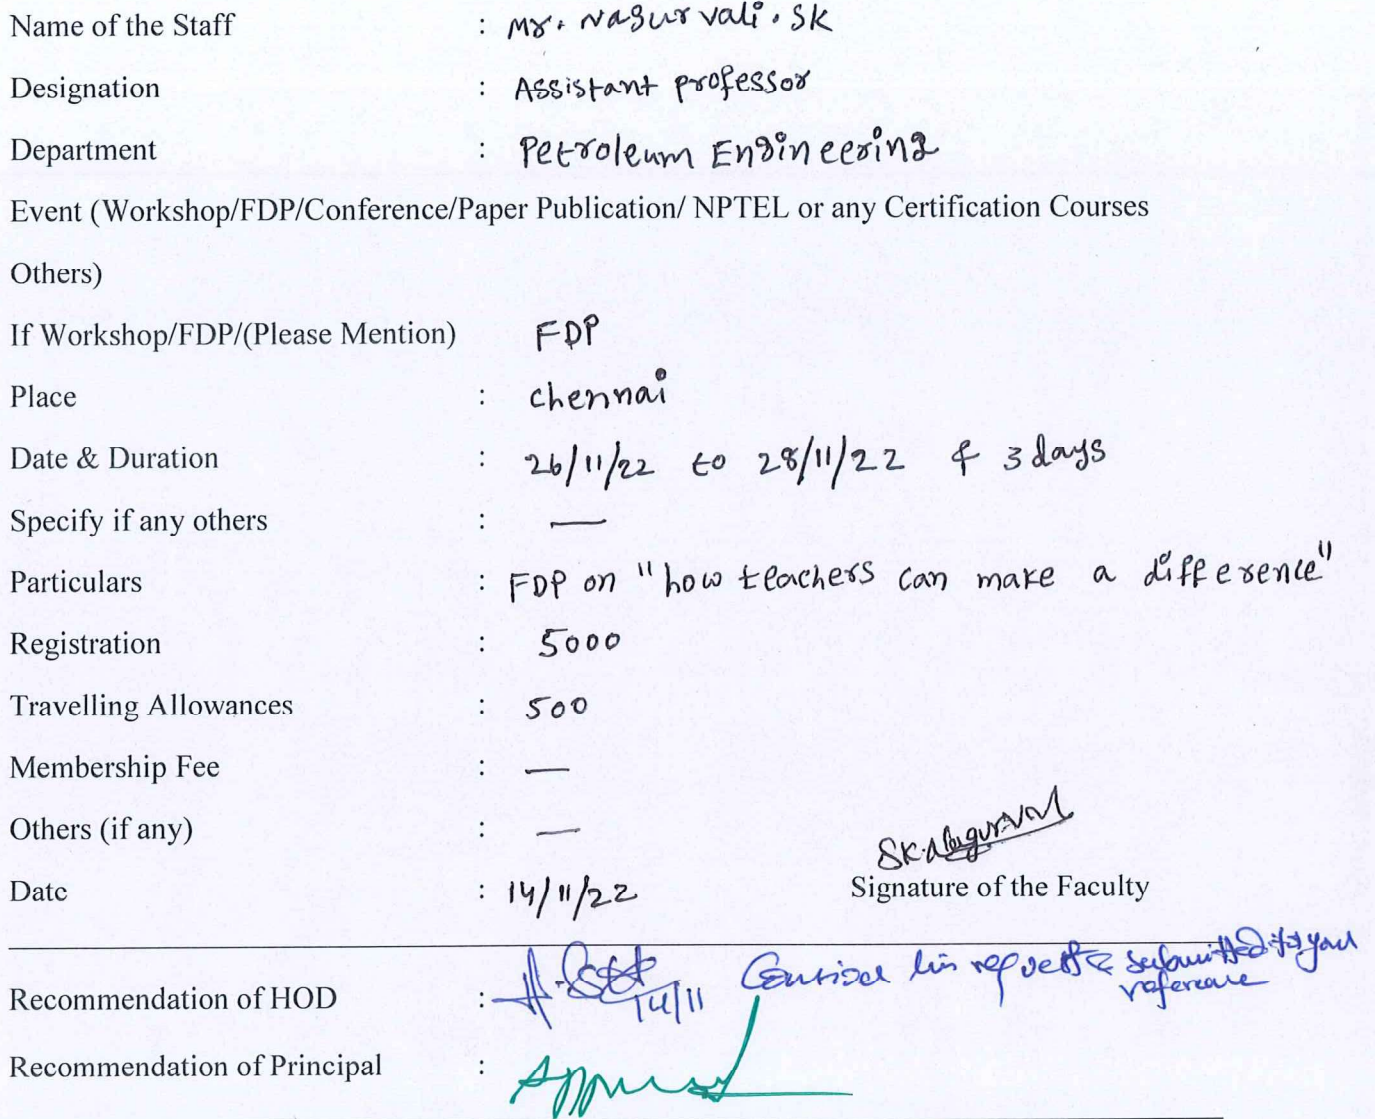 Name of the Staff : Mr. Nagur vali. SK
Designation : Assistant professor
Department : Petroleum Engineering
Event (Workshop/FDP/Conference/Paper Publication/ NPTEL or any Certification Courses
Others)
If Workshop/FDP/(Please Mention) FDP
Place : chennai
Date & Duration : 26/11/22 to 28/11/22 & 3 days
Specify if any others : —
Particulars : FDP on "how teachers can make a difference"
Registration : 5000
Travelling Allowances : 500
Membership Fee : —
Others (if any) : —
Date : 14/11/22
SK. Nagurvali
Signature of the Faculty
Recommendation of HOD : 14/11 his request & submitted for your
reference
Recommendation of Principal : Approved